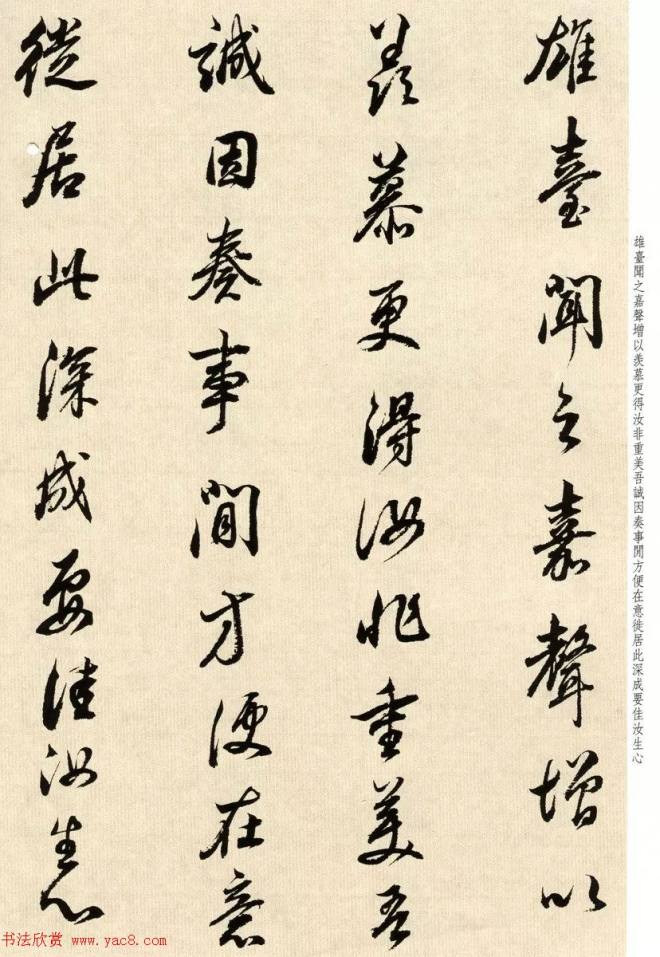 雄臺聞之嘉聲增以
羨慕更得汝非重美吾
誠因奏事閒方便在意
徙居此深成要佳汝生心
雄臺聞之嘉聲增以羨慕更得汝非重美吾誠因奏事閒方便在意徙居此深成要佳汝生心
书法欣赏 www.yac8.com